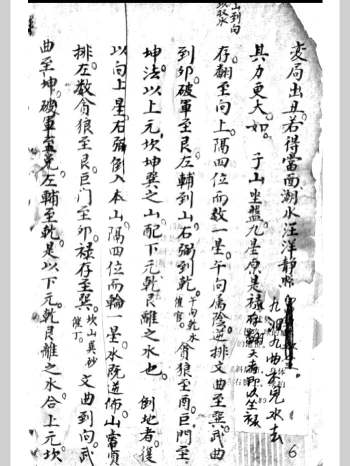 山到向
变局出丑。若得當面湖水汪洋靜
九曲水
其力更大。如 子山坐盤。九星原是祿存
存。翻至向上。隔四位而數一星。午向屬陰。逆排文曲至巽。武曲
到卯。破軍至艮。左輔到山。石弼到乾。午向乾水催官。貪狼至酉。巨門至
坤。法以上元坎坤巽之山。配下元乾艮離之水也。 倒地者。從
以向上星。右弼倒入本山。隔四位而輪一星。水既逆佈。山當順
排。左數貪狼至艮。巨門至卯。祿存至巽。坎山巽砂催丁。 文曲到向。武
曲至坤。破軍至兑。左輔至乾。是以下元乾艮離之水。合上元坎
6